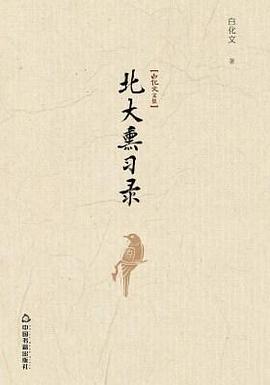 白化文 著
【白化文文集】
北大熏习录
中国书籍出版社